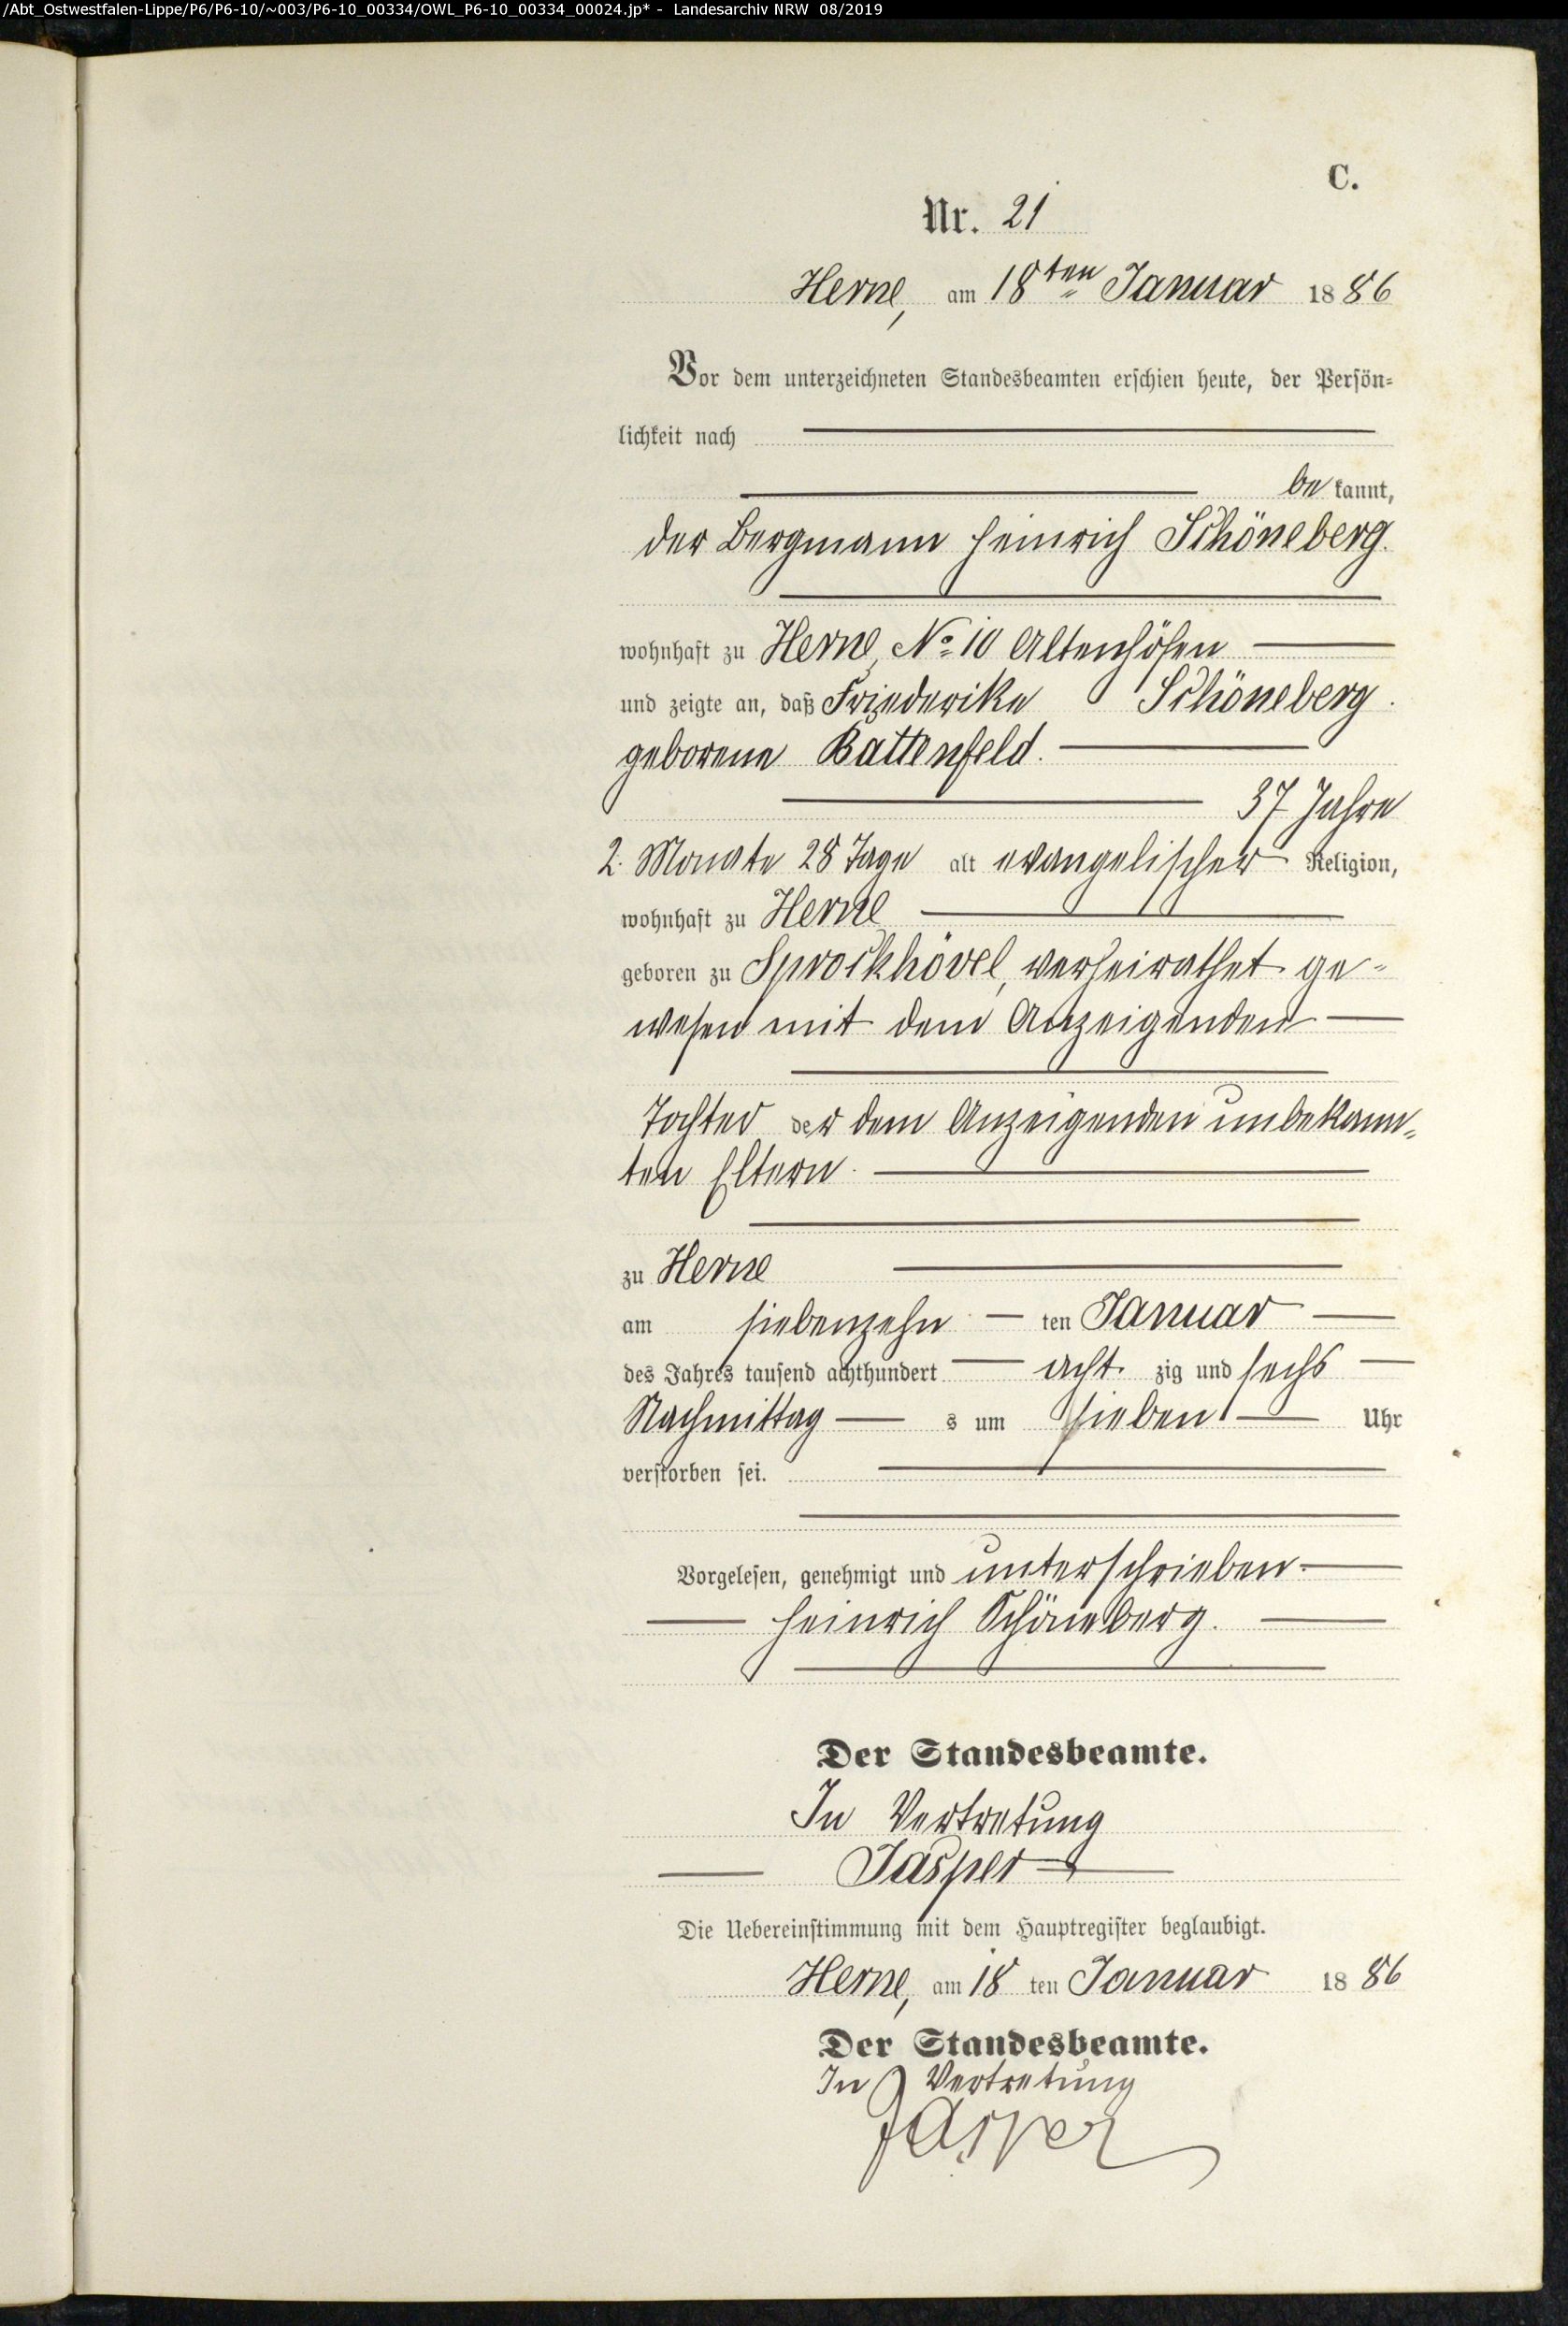 /Abt_Ostwestfalen-Lippe/P6/P6-10/~003/P6-10_00334/OWL_P6-10_00334_00024.jp* - Landesarchiv NRW 08/2019
C.
Nr. 21
Herne, am 18ten Januar 1886
Vor dem unterzeichneten Standesbeamten erschien heute, der Persön-
lichkeit nach
be kannt,
der Bergmann Heinrich Schöneberg.
wohnhaft zu Herne, No 10 Altenhöfen
und zeigte an, daß Friederike Schöneberg.
geborene Battenfeld.
37 Jahre
2. Monate 28 Tage alt evangelischer Religion,
wohnhaft zu Herne
geboren zu Sprockhövel, verheirathet ge-
wesen mit dem Anzeigenden
Tochter der dem Anzeigenden unbekann-
ten Eltern.
zu Herne
am siebenzehn ten Januar
des Jahres tausend achthundert acht zig und sechs
Nachmittag s um sieben Uhr
verstorben sei.
Vorgelesen, genehmigt und unterschrieben.
Heinrich Schöneberg.
Der Standesbeamte.
In Vertretung
Jasper
Die Uebereinstimmung mit dem Hauptregister beglaubigt.
Herne, am 18 ten Januar 1886
Der Standesbeamte.
In Vertretung
Jasper